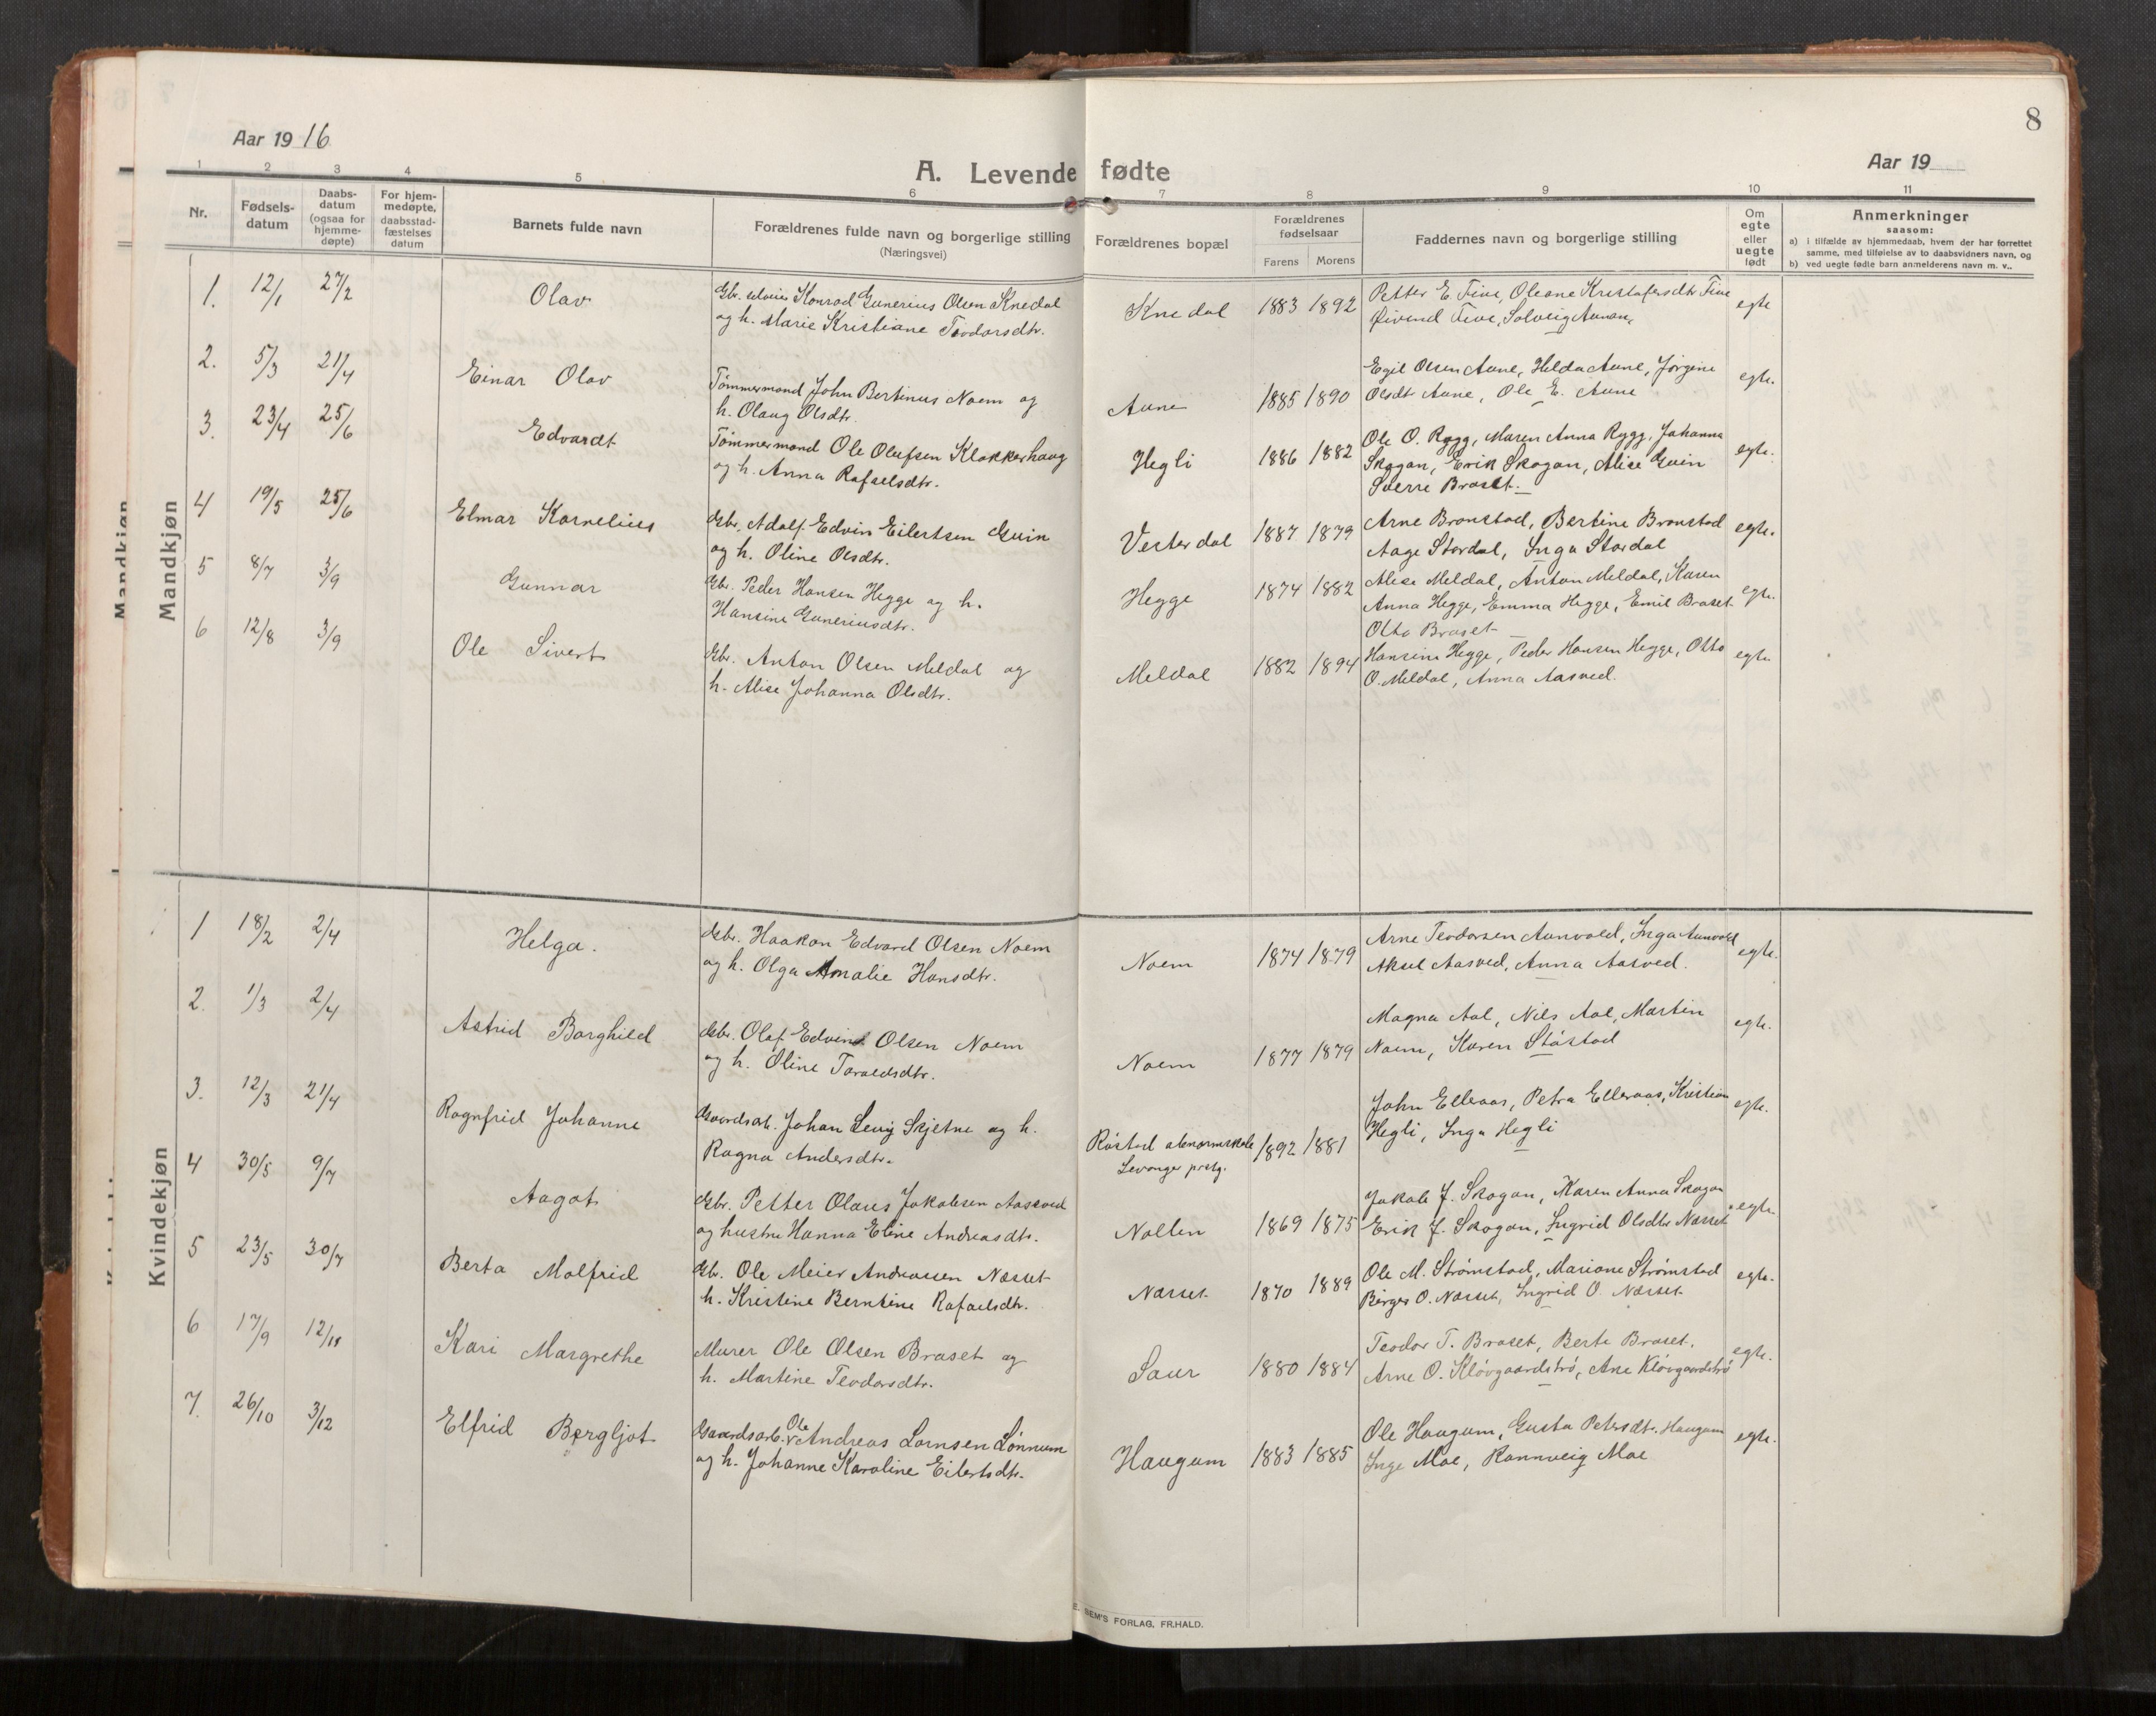 8
Aar 1916
Aar 19
A. Levende fødte
1 2 3 4 5 6 7 8 9 10 11
Nr.
Fødsels-
datum
Daabs-
datum
(ogsaa for
hjemme-
døpte)
For hjem-
medøpte,
daabsstad-
fæstelses
datum
Barnets fulde navn
Forældrenes fulde navn og borgerlige stilling
(Næringsvei)
Forældrenes bopæl
Forældrenes
fødselsaar
Farens Morens
Faddernes navn og borgerlige stilling
Om
egte
eller
uegte
født
Anmerkninger
saasom:
a) i tilfælde av hjemmedaab, hvem der har forrettet
samme, med tilføielse av to daabsvidners navn, og
b) ved uegte fødte barn anmelderens navn m. v..
Mandkjøn
Mandkjøn
1. 12/1 27/2 Olav Gbr. Konrad Gunerius Olsen Knedal Knedal 1883 1892 Petter E. Five, Oleane Kristofersdtr Five egte
og h. Marie Kristiane Teodorsdtr. Øivind Five, Solveig Aunan,
2. 5/3 21/4 Einar Olav Tømmermand John Bertinus Noem og Aune 1885 1890 Egil Olsen Aune, Helda Aune, Jørgine egte.
h. Olaug Olsdtr. Olsdt Aune, Ole E. Aune
3. 23/4 25/6 Edvardt Tømmermand Ole Olufsen Klokkerhaug Hegli 1886 1882 Ole O. Rygg, Maren Anna Rygg, Johanna egte.
og h. Anna Rafaelsdtr. Skogan, Erik Skogan, Alise Guin
Sverre Braset.
4 19/5 25/6 Elmar Kornelius Gbr. Adolf Edvin Eilertsen Guin Vesterdal 1887 1879 Arne Bronstad, Bertine Bronstad egte.
og h. Oline Olsdtr. Aage Stordal, Inga Stordal
5 8/7 3/9 Gunnar Gbr. Peder Hansen Hegge og h. Hegge 1874 1882 Alise Meldal, Anton Meldal, Karen egte.
Hansine Guneriusdtr. Anna Hegge, Emma Hegge, Emil Braset
Otto Braset
6 12/8 3/9 Ole Sivert Gbr. Anton Olsen Meldal og Meldal 1882 1894 Hansine Hegge, Peder Hansen Hegge, Otto egte
h. Alise Johanna Olsdtr. O. Meldal, Anna Aasved.
Kvindekjøn
1 18/2 2/4 Helga. Gbr. Haakon Edvard Olsen Noem Noem 1874 1879 Arne Teodorsen Aunvold, Inga Aunvold egte.
og h. Olga Amalie Hansdtr. Aksel Aasved, Anna Aasved.
2. 1/3 2/4 Astrid Borghild Gbr. Olaf Edvind Olsen Noem Noem 1877 1879 Magna Aal, Nils Aal, Martin egte.
og h. Oline Toraldsdtr. Noem, Karen Støstad
3. 12/3 21/4 Ragnfrid Johanne Gaardsarb. Johan Levij Skjetne og h. Røstad abnormskole 1892 1881 John Elleraas, Petra Elleraas, Kristian egte.
Ragna Andersdtr. Levanger prstg. Hegli, Inga Hegli
4 30/5 9/7 Aagot Gbr. Petter Olaus Jakobsen Aasved Nollen 1869 1875 Jakob J. Skogan, Karen Anna Skogan egte.
og hustru Hanna Eline Andreasdtr. Erik J. Skogan, Ingrid Olsdtr Næsset
5 23/5 30/7 Berta Malfrid Gbr. Ole Meier Andreassen Næsset Næsset 1870 1889 Ole M. Strømstad, Mariane Strømstad egte.
h. Kristine Berntine Rafaelsdtr. Birger O. Næsset, Ingrid O. Næsset
6 17/9 12/11 Kari Margrethe Murer Ole Olsen Braset og Saur 1880 1884 Teodor T. Braset, Berte Braset, egte.
h. Martine Teodorsdtr. Arne O. Kløvgaardstrø, Ane Kløvgaardstrø
7. 26/10 3/12 Elfrid Bergljot Gaardsarb. Ole Andreas Larnsen Lønnum Haugum 1883 1885 Ole Haugum, Gusta Petersdtr. Haugum egte.
og h. Johanne Karoline Eilertsdtr. Inge Moe, Rannveig Moe
E. SEM'S FORLAG, FR.HALD.